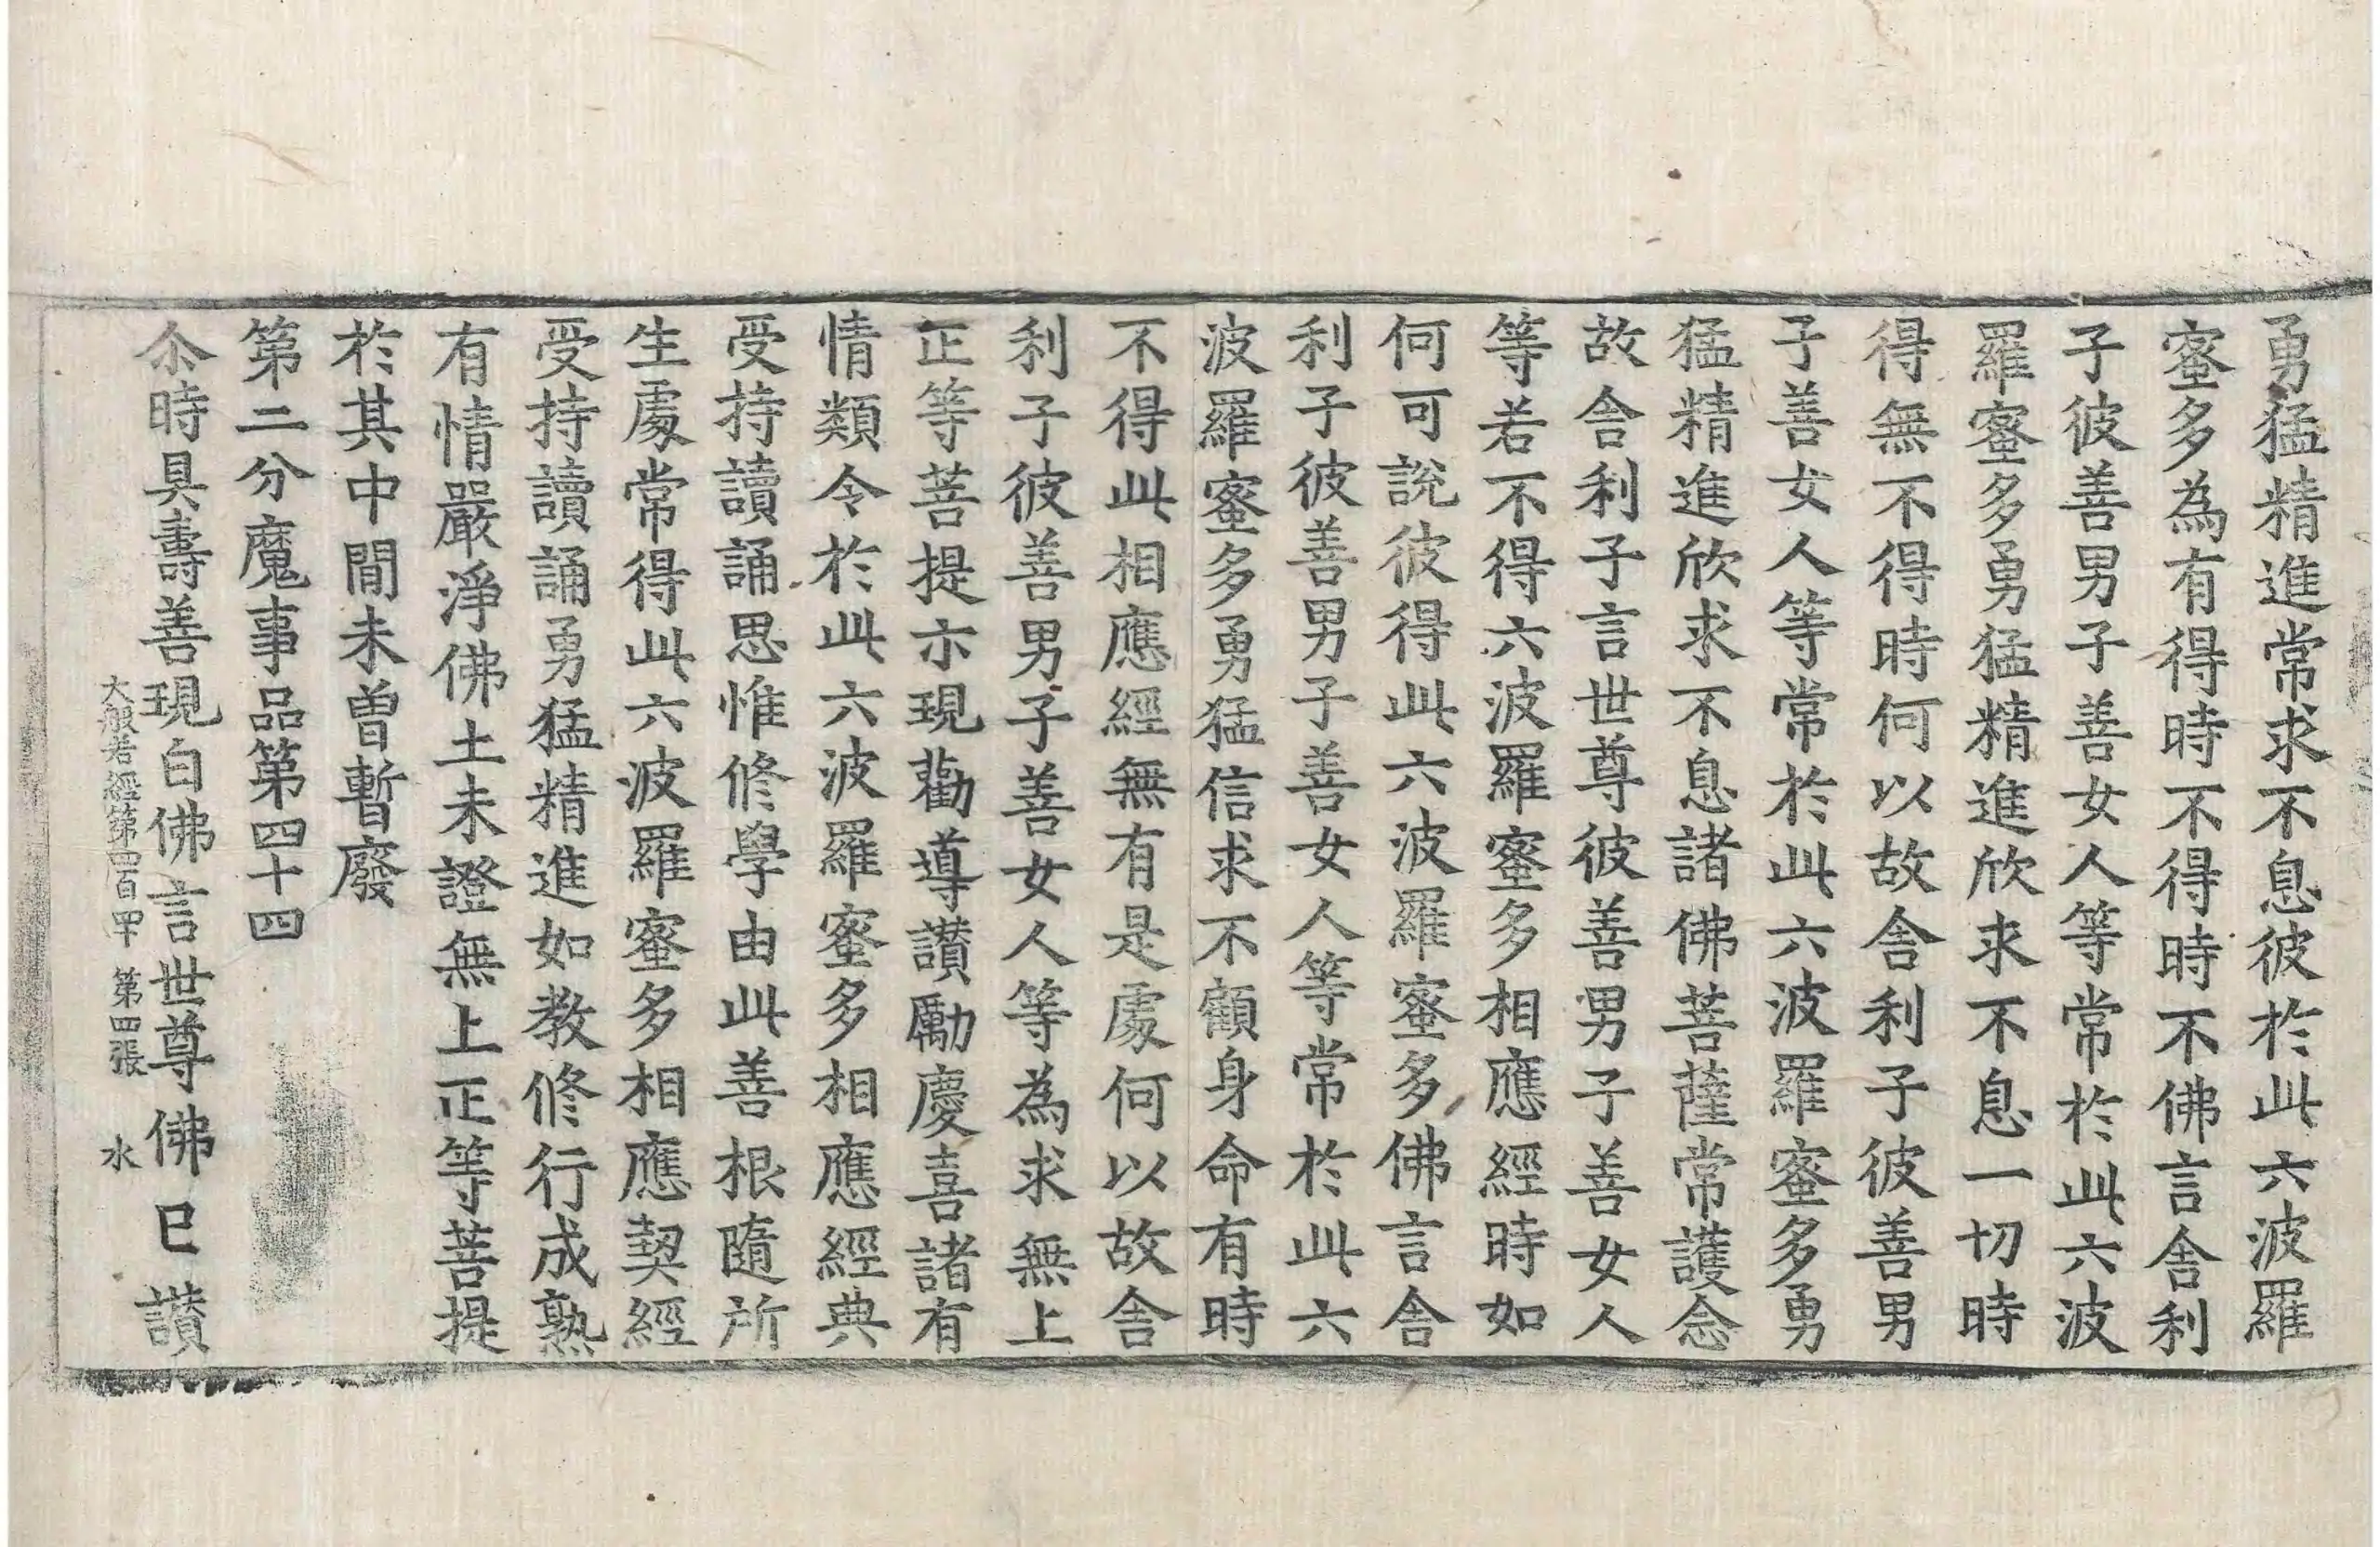 勇猛精進常求不息彼於此六波羅
蜜多為有得時不得時不佛言舎利
子彼善男子善女人等常於此六波
羅蜜多勇猛精進欣求不息一切時
得無不得時何以故舎利子彼善男
子善女人等常於此六波羅蜜多勇
猛精進欣求不息諸佛菩薩常護念
故舎利子言世尊彼善男子善女人
等若不得六波羅蜜多相應經時如
何可說彼得此六波羅蜜多佛言舎
利子彼善男子善女人等常於此六
波羅蜜多勇猛信求不顧身命有時
不得此相應經無有是處何以故舎
利子彼善男子善女人等為求無上
正等菩提亦現勸導讃勵慶喜諸有
情類令於此六波羅蜜多相應經典
受持讀誦思惟修學由此善根隨所
生處常得此六波羅蜜多相應契經
受持讀誦勇猛精進如教修行成熟
有情嚴淨佛土未證無上正等菩提
於其中間未曽暫廢
第二分魔事品第四十四
尒時具壽善現白佛言世尊佛已讃
大般若經第四百卌 第四張 水